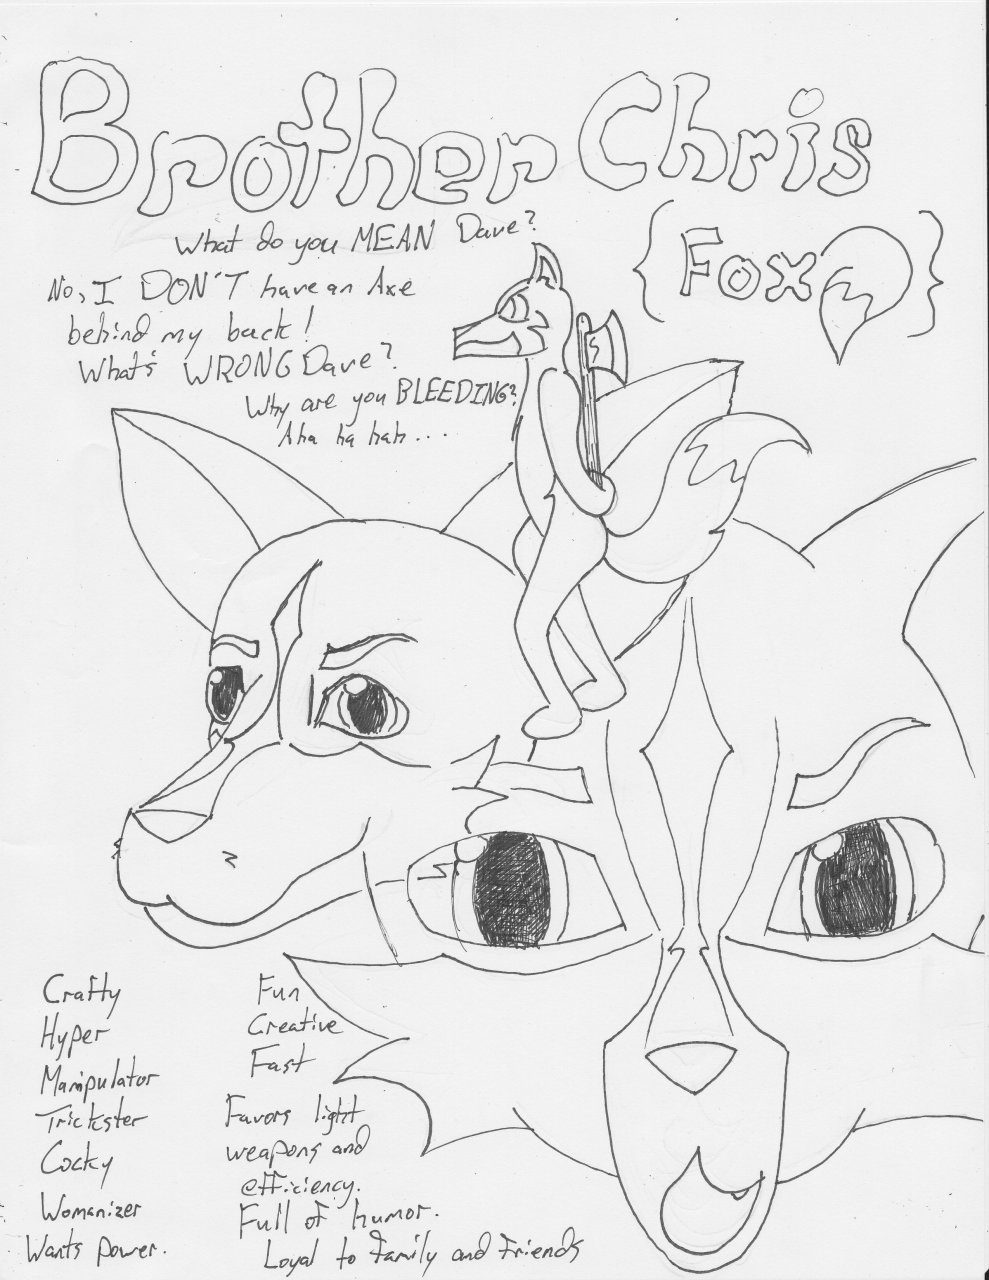 Brother Chris
{Fox}
What do you MEAN Dave?
No, I DON'T have an Axe
behind my back!
What's WRONG Dave?
Why are you BLEEDING?
Aha ha hah...
Crafty
Hyper
Manipulator
Trickster
Cocky
Womanizer
Wants power.
Fun
Creative
Fast
Favors light
weapons and
efficiency.
Full of humor.
Loyal to Family and Friends